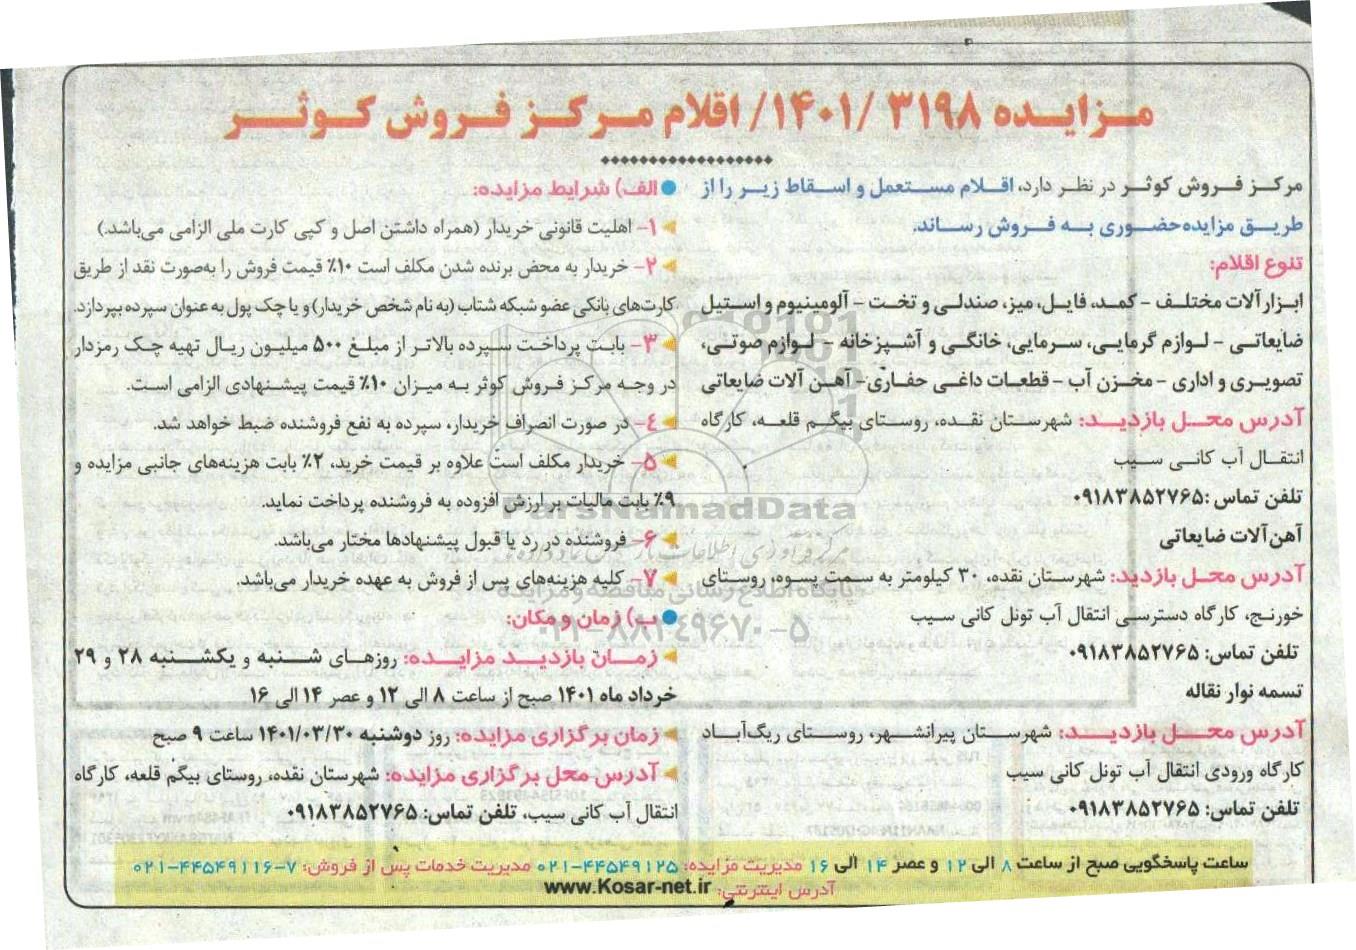 مزایده ۳۱۹۸ /۱۴۰۱/ اقلام مرکز فروش کوثر
مرکز فروش کوثر در نظر دارد، اقلام مستعمل و اسقاط زیر را از
طریق مزایده حضوری به فروش رساند.
تنوع اقلام:
ابزارآلات مختلف – کمد، فایل، میز، صندلی و تخت – آلومینیوم و استیل
ضایعاتی – لوازم گرمایی، سرمایی، خانگی و آشپزخانه – لوازم صوتی،
تصویری و اداری – مخزن آب – قطعات داغی حفاری– آهن آلات ضایعاتی
آدرس محل بازدید: شهرستان نقده، روستای بیگم قلعه، کارگاه
انتقال آب کانی سیب
تلفن تماس :۰۹۱۸۳۸۵۲۷۶۵
آهن‌آلات ضایعاتی
آدرس محل بازدید: شهرستان نقده، ۳۰ کیلومتر به سمت پسوه، روستای
خورنج، کارگاه دسترسی انتقال آب تونل کانی سیب
تلفن تماس: ۰۹۱۸۳۸۵۲۷۶۵
تسمه نوار نقاله
آدرس محل بازدید: شهرستان پیرانشهر، روستای ریگ‌آباد
کارگاه ورودی انتقال آب تونل کانی سیب
تلفن تماس: ۰۹۱۸۳۸۵۲۷۶۵
الف) شرایط مزایده:
۱– اهلیت قانونی خریدار (همراه داشتن اصل و کپی کارت ملی الزامی می‌باشد.)
۲– خریدار به محض برنده شدن مکلف است ۱۰٪ قیمت فروش را به‌صورت نقد از طریق
کارت‌های بانکی عضو شبکه شتاب (به نام شخص خریدار) و یا چک پول به عنوان سپرده بپردازد.
۳– بابت پرداخت سپرده بالاتر از مبلغ ۵۰۰ میلیون ریال تهیه چک رمزدار
در وجه مرکز فروش کوثر به میزان ۱۰٪ قیمت پیشنهادی الزامی است.
۴– در صورت انصراف خریدار، سپرده به نفع فروشنده ضبط خواهد شد.
۵– خریدار مکلف است علاوه بر قیمت خرید، ۲٪ بابت هزینه‌های جانبی مزایده و
۹٪ بابت مالیات بر ارزش افزوده به فروشنده پرداخت نماید.
۶– فروشنده در رد یا قبول پیشنهادها مختار می‌باشد.
۷– کلیه هزینه‌های پس از فروش به عهده خریدار می‌باشد.
ب) زمان و مکان:
زمان بازدید مزایده: روزهای شنبه و یکشنبه ۲۸ و ۲۹
خرداد ماه ۱۴۰۱ صبح از ساعت ۸ الی ۱۲ و عصر ۱۴ الی ۱۶
زمان برگزاری مزایده: روز دوشنبه ۱۴۰۱/۰۳/۳۰ ساعت ۹ صبح
آدرس محل برگزاری مزایده: شهرستان نقده، روستای بیگم قلعه، کارگاه
انتقال آب کانی سیب، تلفن تماس: ۰۹۱۸۳۸۵۲۷۶۵
ساعت پاسخگویی صبح از ساعت ۸ الی ۱۲ و عصر ۱۴ الی ۱۶ مدیریت مزایده: ۰۲۱-۴۴۵۴۹۱۲۵ مدیریت خدمات پس از فروش: ۰۲۱-۴۴۵۴۹۱۱۶-۷
آدرس اینترنتی: www.Kosar-net.ir
ParsNamadData
پایگاه اطلاع رسانی مناقصه و مزایده
۰۲۱-۸۸۳۴۹۶۷۰-۵